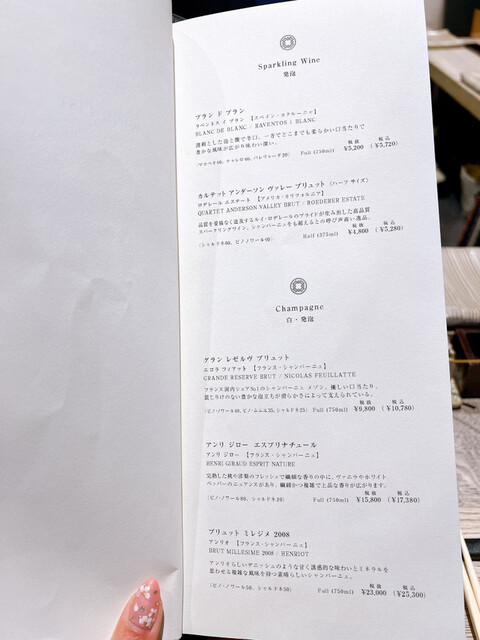 Sparkling Wine
発泡
ブラン ド ブラン
ラベントス イ ブラン 【スペイン・カタルーニャ】
BLANC DE BLANC / RAVENTOS i BLANC
豊かな風味が広がり味わい深い。
Full (750ml)
税抜 税込
¥5,200 (¥5,720)
カルテット アンダーソン ヴァレー ブリュット (ハーフ サイズ)
ロデレール エステート 【アメリカ・カリフォルニア】
QUARTET ANDERSON VALLEY BRUT / ROEDERER ESTATE
品質を妥協なく追及するルイ・ロデレールのプライドが生み出した高品質
スパークリングワイン。シャンパーニュをも超えるとの呼び声高い逸品。
(シャルドネ60, ピノ・ノワール40) Half (375ml)
税抜 税込
¥4,800 (¥5,280)
Champagne
白・発泡
グラン レゼルヴ ブリュット
ニコラ フィアット 【フランス・シャンパーニュ】
GRANDE RESERVE BRUT / NICOLAS FEUILLATTE
フランス国内シェアNo1のシャンパーニュ メゾン。優しい口当たり、
親しりけのない豊かな泡立ちが滑らかさによって支えられている。
Full (750ml)
税抜 税込
¥9,800 (¥10,780)
アンリ ジロー エスプリナチュール
アンリ ジロー 【フランス・シャンパーニュ】
HENRI GIRAUD ESPRIT NATURE
完熟した桃や洋梨のフレッシュで繊細な香りの中に、ヴァニラやホワイト
ペッパーのニュアンスがあり、繊細かつ複雑で上品な香りが広がります。
(ピノ・ノワール80, シャルドネ20) Full (750ml)
税抜 税込
¥15,800 (¥17,380)
ブリュット ミレジメ 2008
アンリオ 【フランス・シャンパーニュ】
BRUT MILLESIME 2008 / HENRIOT
アンリオらしいデニッシュのような甘く誘惑的な味わいとミネラルを
思わせる複雑な風味を持つ素晴らしいシャンパーニュ。
(ピノ・ノワール50, シャルドネ50) Full (750ml)
税抜 税込
¥23,000 (¥25,300)